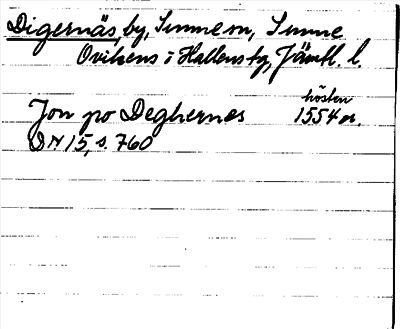 Digernäs, by, Sunne sn, Sunne
Ovikens o Hallens tg, Jämtl. l.
hösten
Jon po Deghernes 1554
DN 15, s. 760